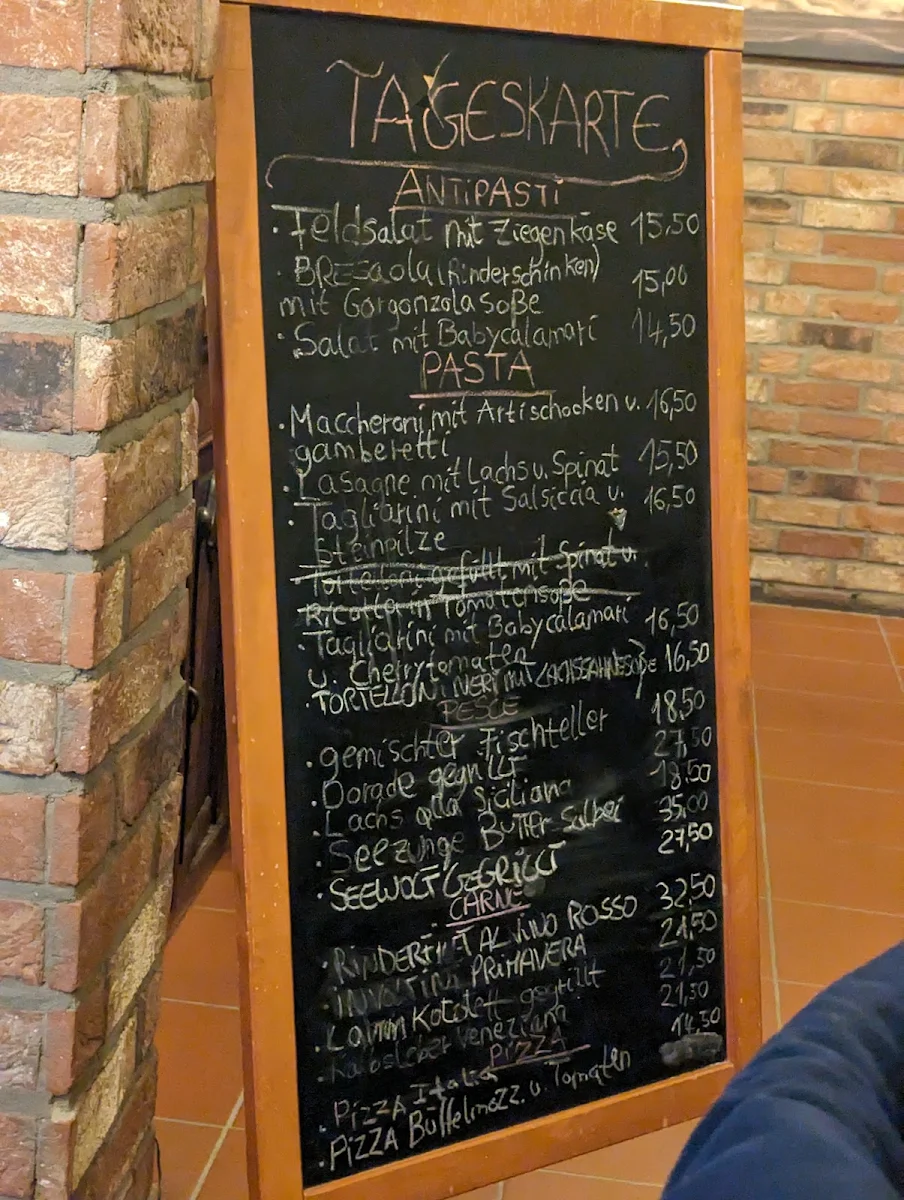 TAGESKARTE
ANTIPASTI
· Feldsalat mit Ziegenkäse 15,50
· BRESaola (Rinderschinken)
mit Gorgonzola Soße 15,00
· Salat mit Babycalamari 14,50
PASTA
· Maccheroni mit Artischocken u. 16,50
gamberetti
· Lasagne mit Lachs u. Spinat 15,50
· Tagliarini mit Salsiccia u. 16,50
Steinpilze
Tortelloni gefüllt mit Spinat u.
Ricotta in Tomatensoße
· Tagliarini mit Babycalamari 16,50
u. Cherrytomaten
· TORTELLONI NERI mit LACHSSAHNESOßE 16,50
PESCE
· gemischter Fischteller 18,50
· Dorade gegrillt 27,50
· Lachs alla Siciliana 18,50
· Seezunge Butter Salbei 35,00
· SEEWOLF GEGRILLT 27,50
CARNE
· RINDERFILET AL VINO ROSSO 32,50
· INVOLTINI PRIMAVERA 21,50
· Lamm Kotelett gegrillt 21,50
· Kalbsleber Veneziana 21,50
PIZZA
· PIZZA Italia 14,50
· PIZZA Büffelmozz. u. Tomaten